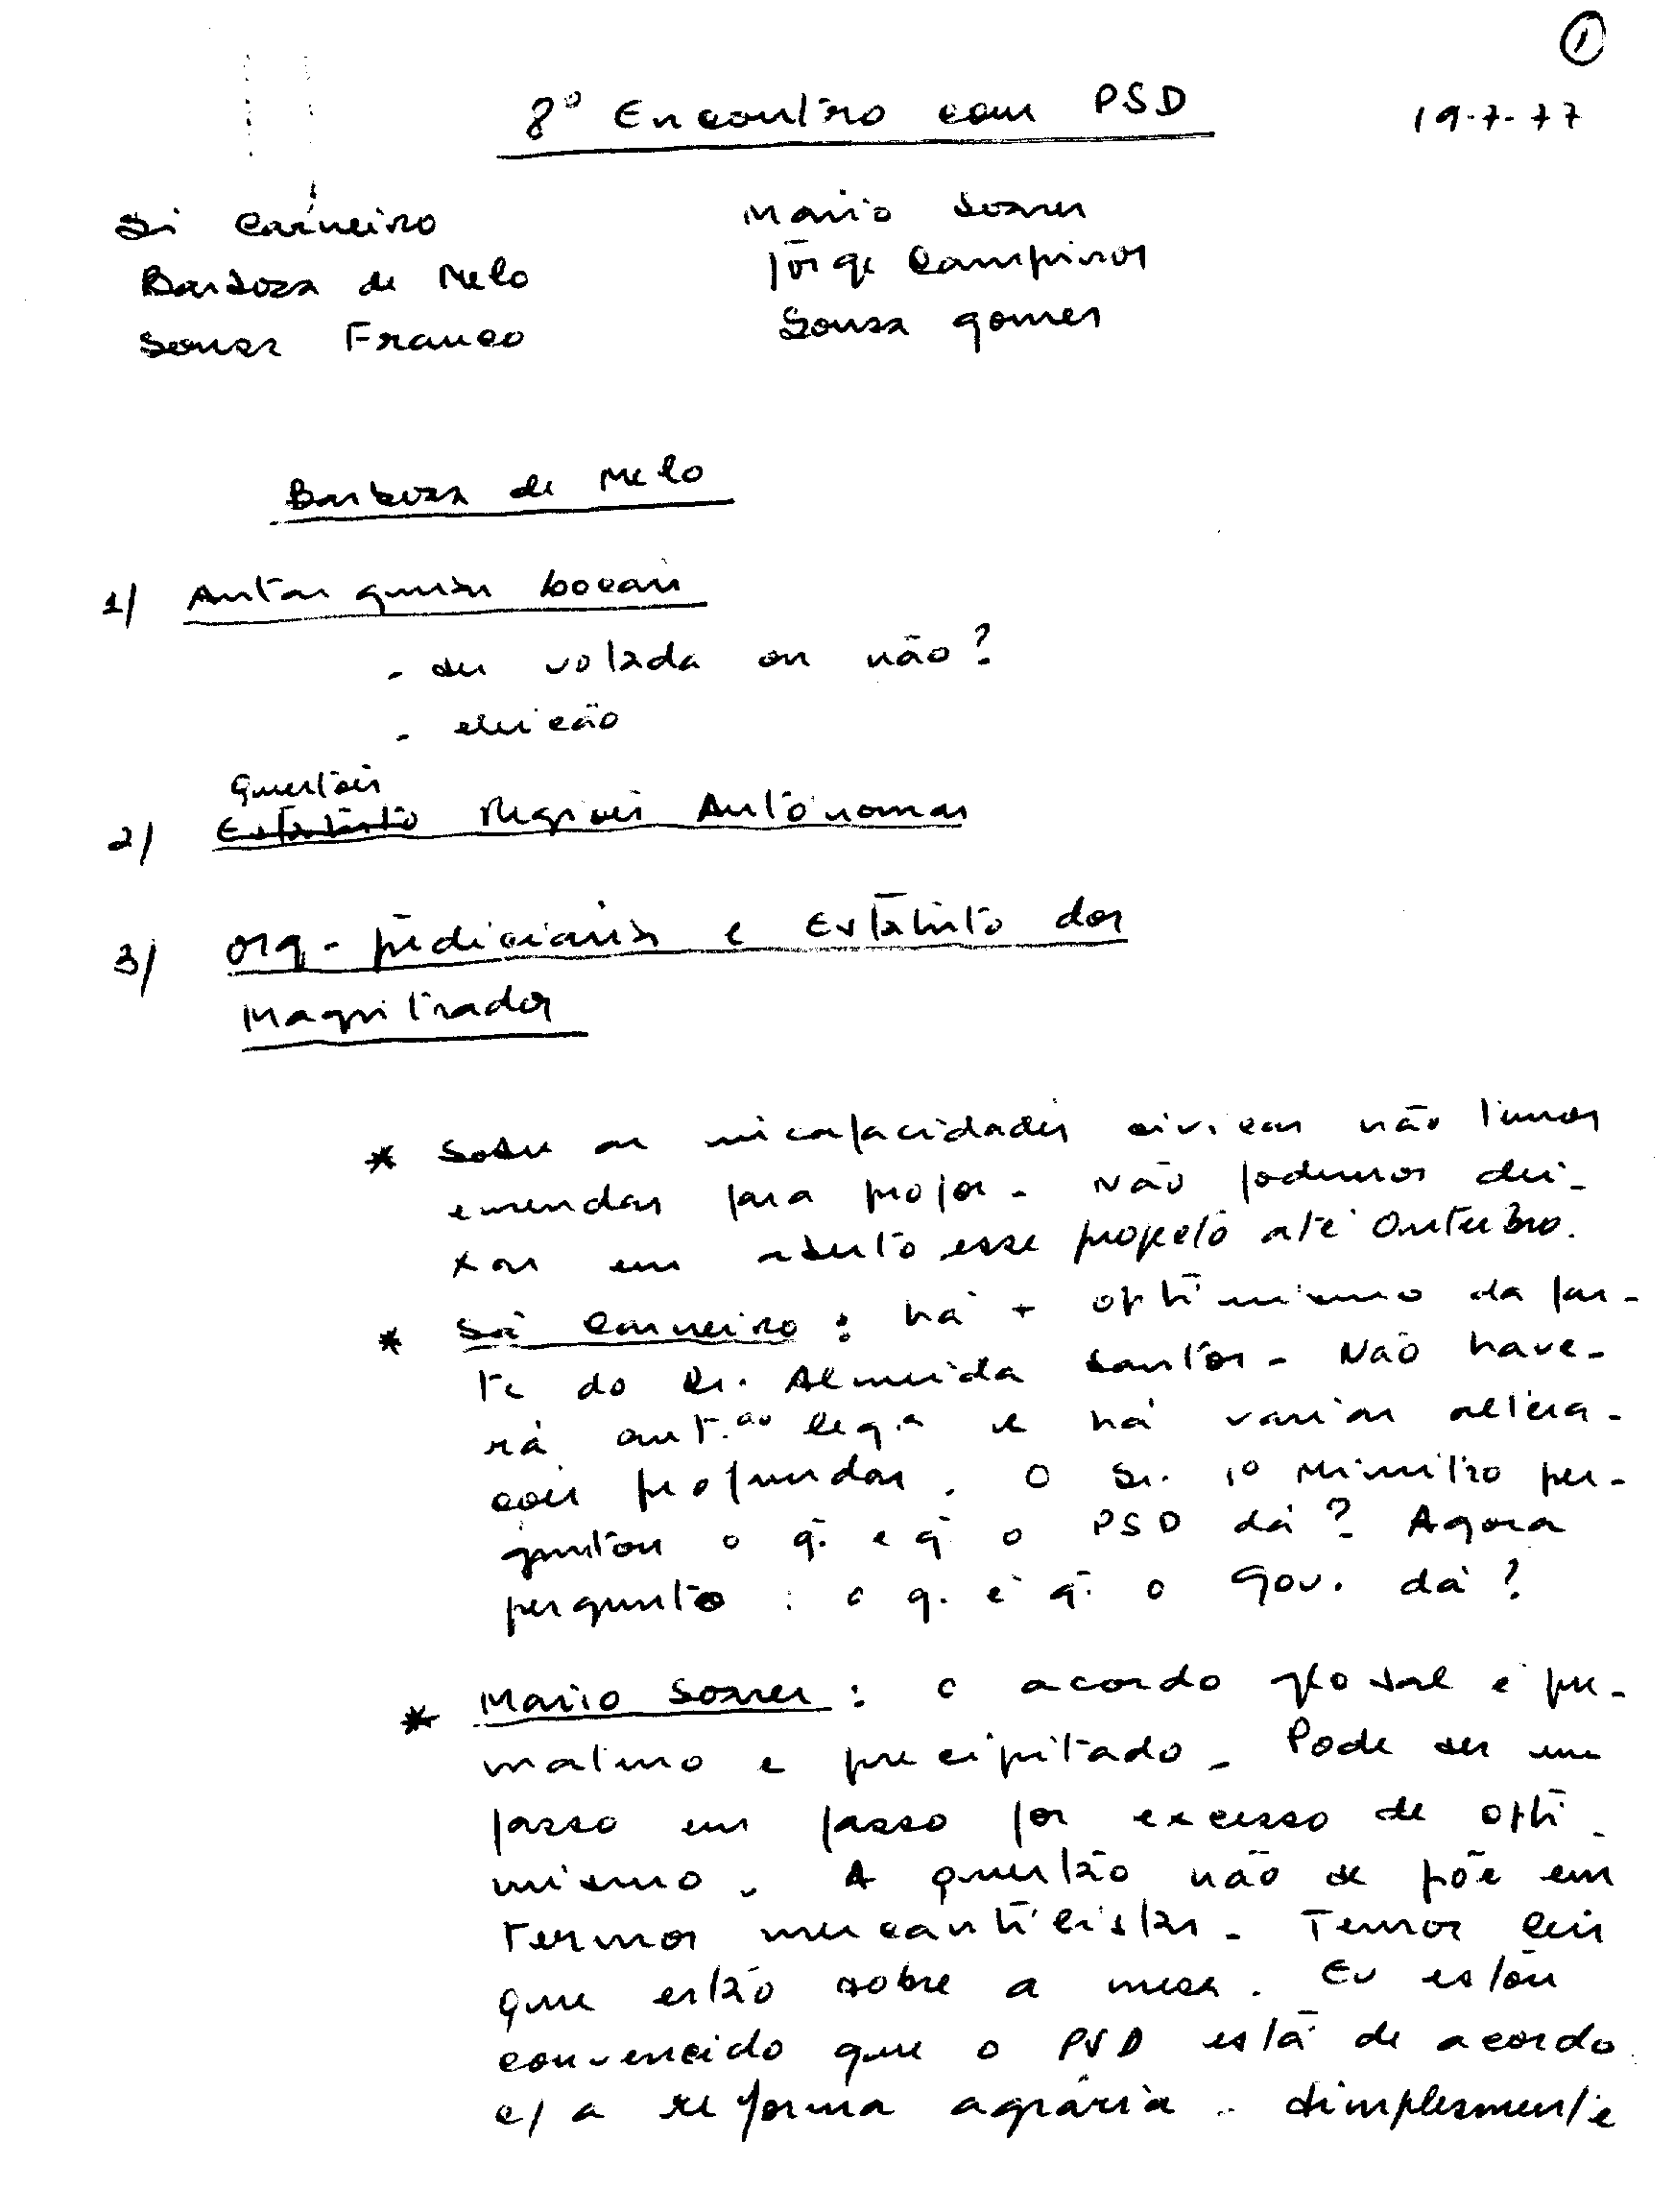 1
8º Encontro com PSD
19-7-77
Sá Carneiro
Mario Soares
Barboza de Melo
Jorge Campinos
Sousa Franco
Sousa Gomes
Barboza de Melo
1/ Autarquias Locais
- ser votada ou não?
- eleição
Questões
2/ Estatuto Regiões Autónomas
3/ Org. judiciaria e Estatuto dos
Magistrados
* Sobre as incapacidades civicas não temos
emendas para propor. Não podemos dei-
xar em aberto esse projecto até Outubro.
* Sá Carneiro: há + optimismo da par-
te do Dr. Almeida Santos. Não have-
rá aut.ão leg.a e há varias altera-
ções profundas. O Sr. 1º Ministro per-
guntou o q. é q. o PSD dá? Agora
pergunto: o q. é q. o Gov. dá?
* Mario Soares: o acordo global é pre-
maturo e precipitado. Pode ser um
passo em passo por excesso de opti-
mismo. A questão não se põe em
termos mercantilistas. Temos leis
que estão sobre a mesa. Eu estou
convencido que o PSD está de acordo
c/ a reforma agrária. Simplesmente